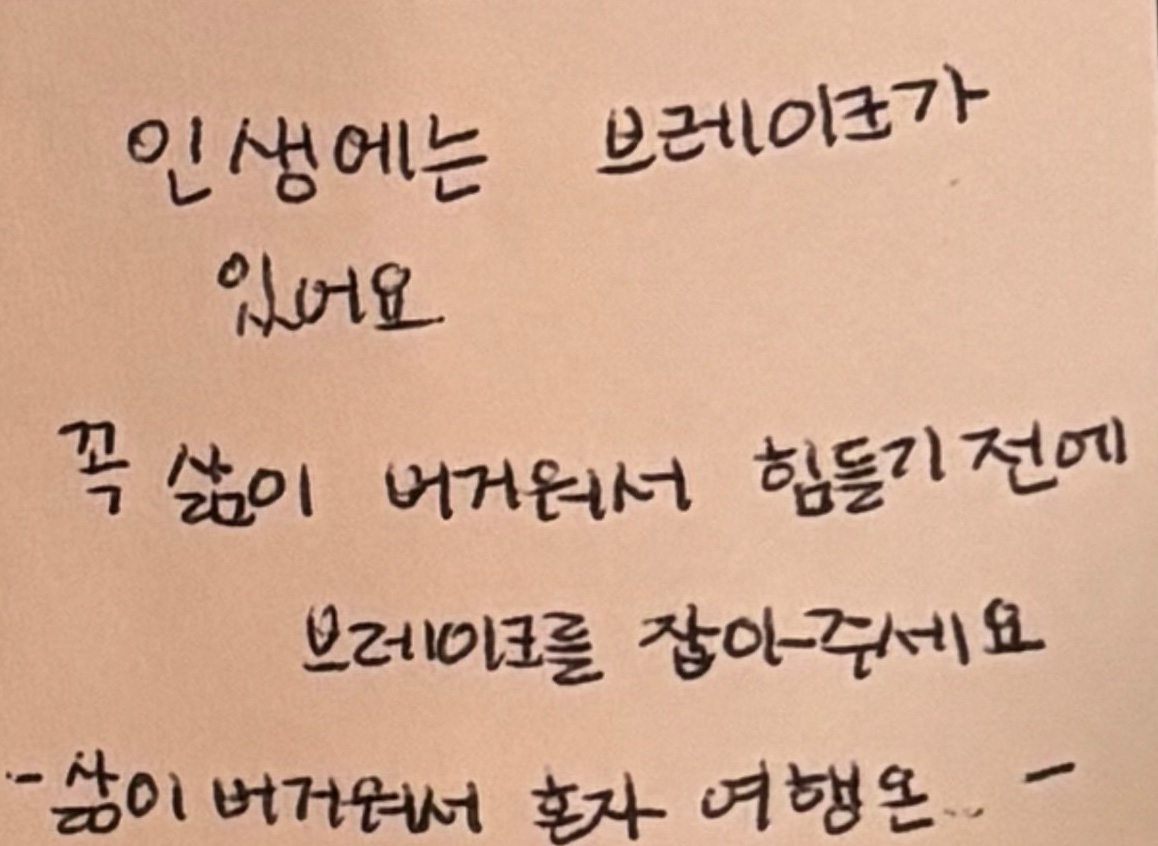 인생에는 브레이크가
있어요
꼭 삶이 버거워서 힘들기 전에
브레이크를 잡아주세요
- 삶이 버거워서 혼자 여행온... -